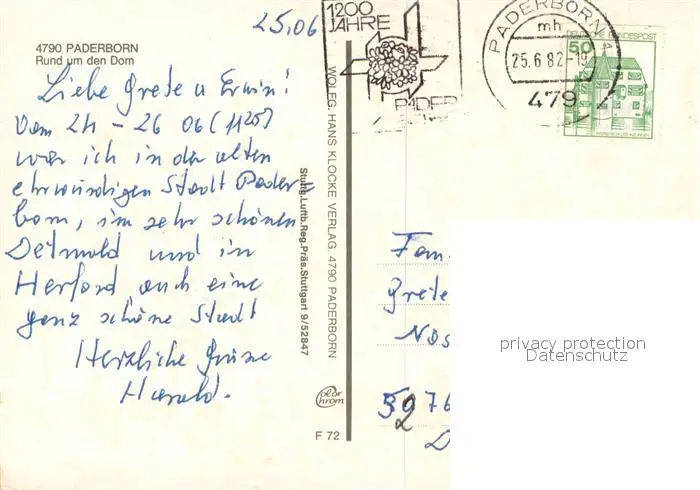 25.06
4790 PADERBORN
Rund um den Dom
Liebe Grete u Erwin!
Vom 24 - 26 06 (1120)
war ich in der alten
ehrwürdigen Stadt Pader=
born, im sehr schönen
Detmold und in
Herford, auch eine
ganz schöne Stadt
Herzliche Grüße
Harald.
Stuhlg.Luftb.Reg.Präs.Stuttgart 9/52847
WOLFG. HANS KLOCKE VERLAG, 4790 PADERBORN
color chrom
F 72
1200
JAHRE
PADER
PADERBORN 1
mh
25.6.82-19
479
DEUTSCHE BUNDESPOST
50
Fam.
Grete
Nos
5076
2
privacy protection
Datenschutz